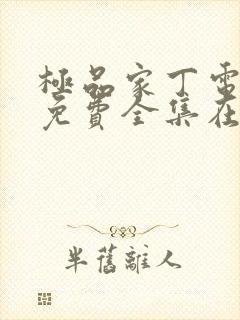 極品家丁電
免費全集在
半舊離人